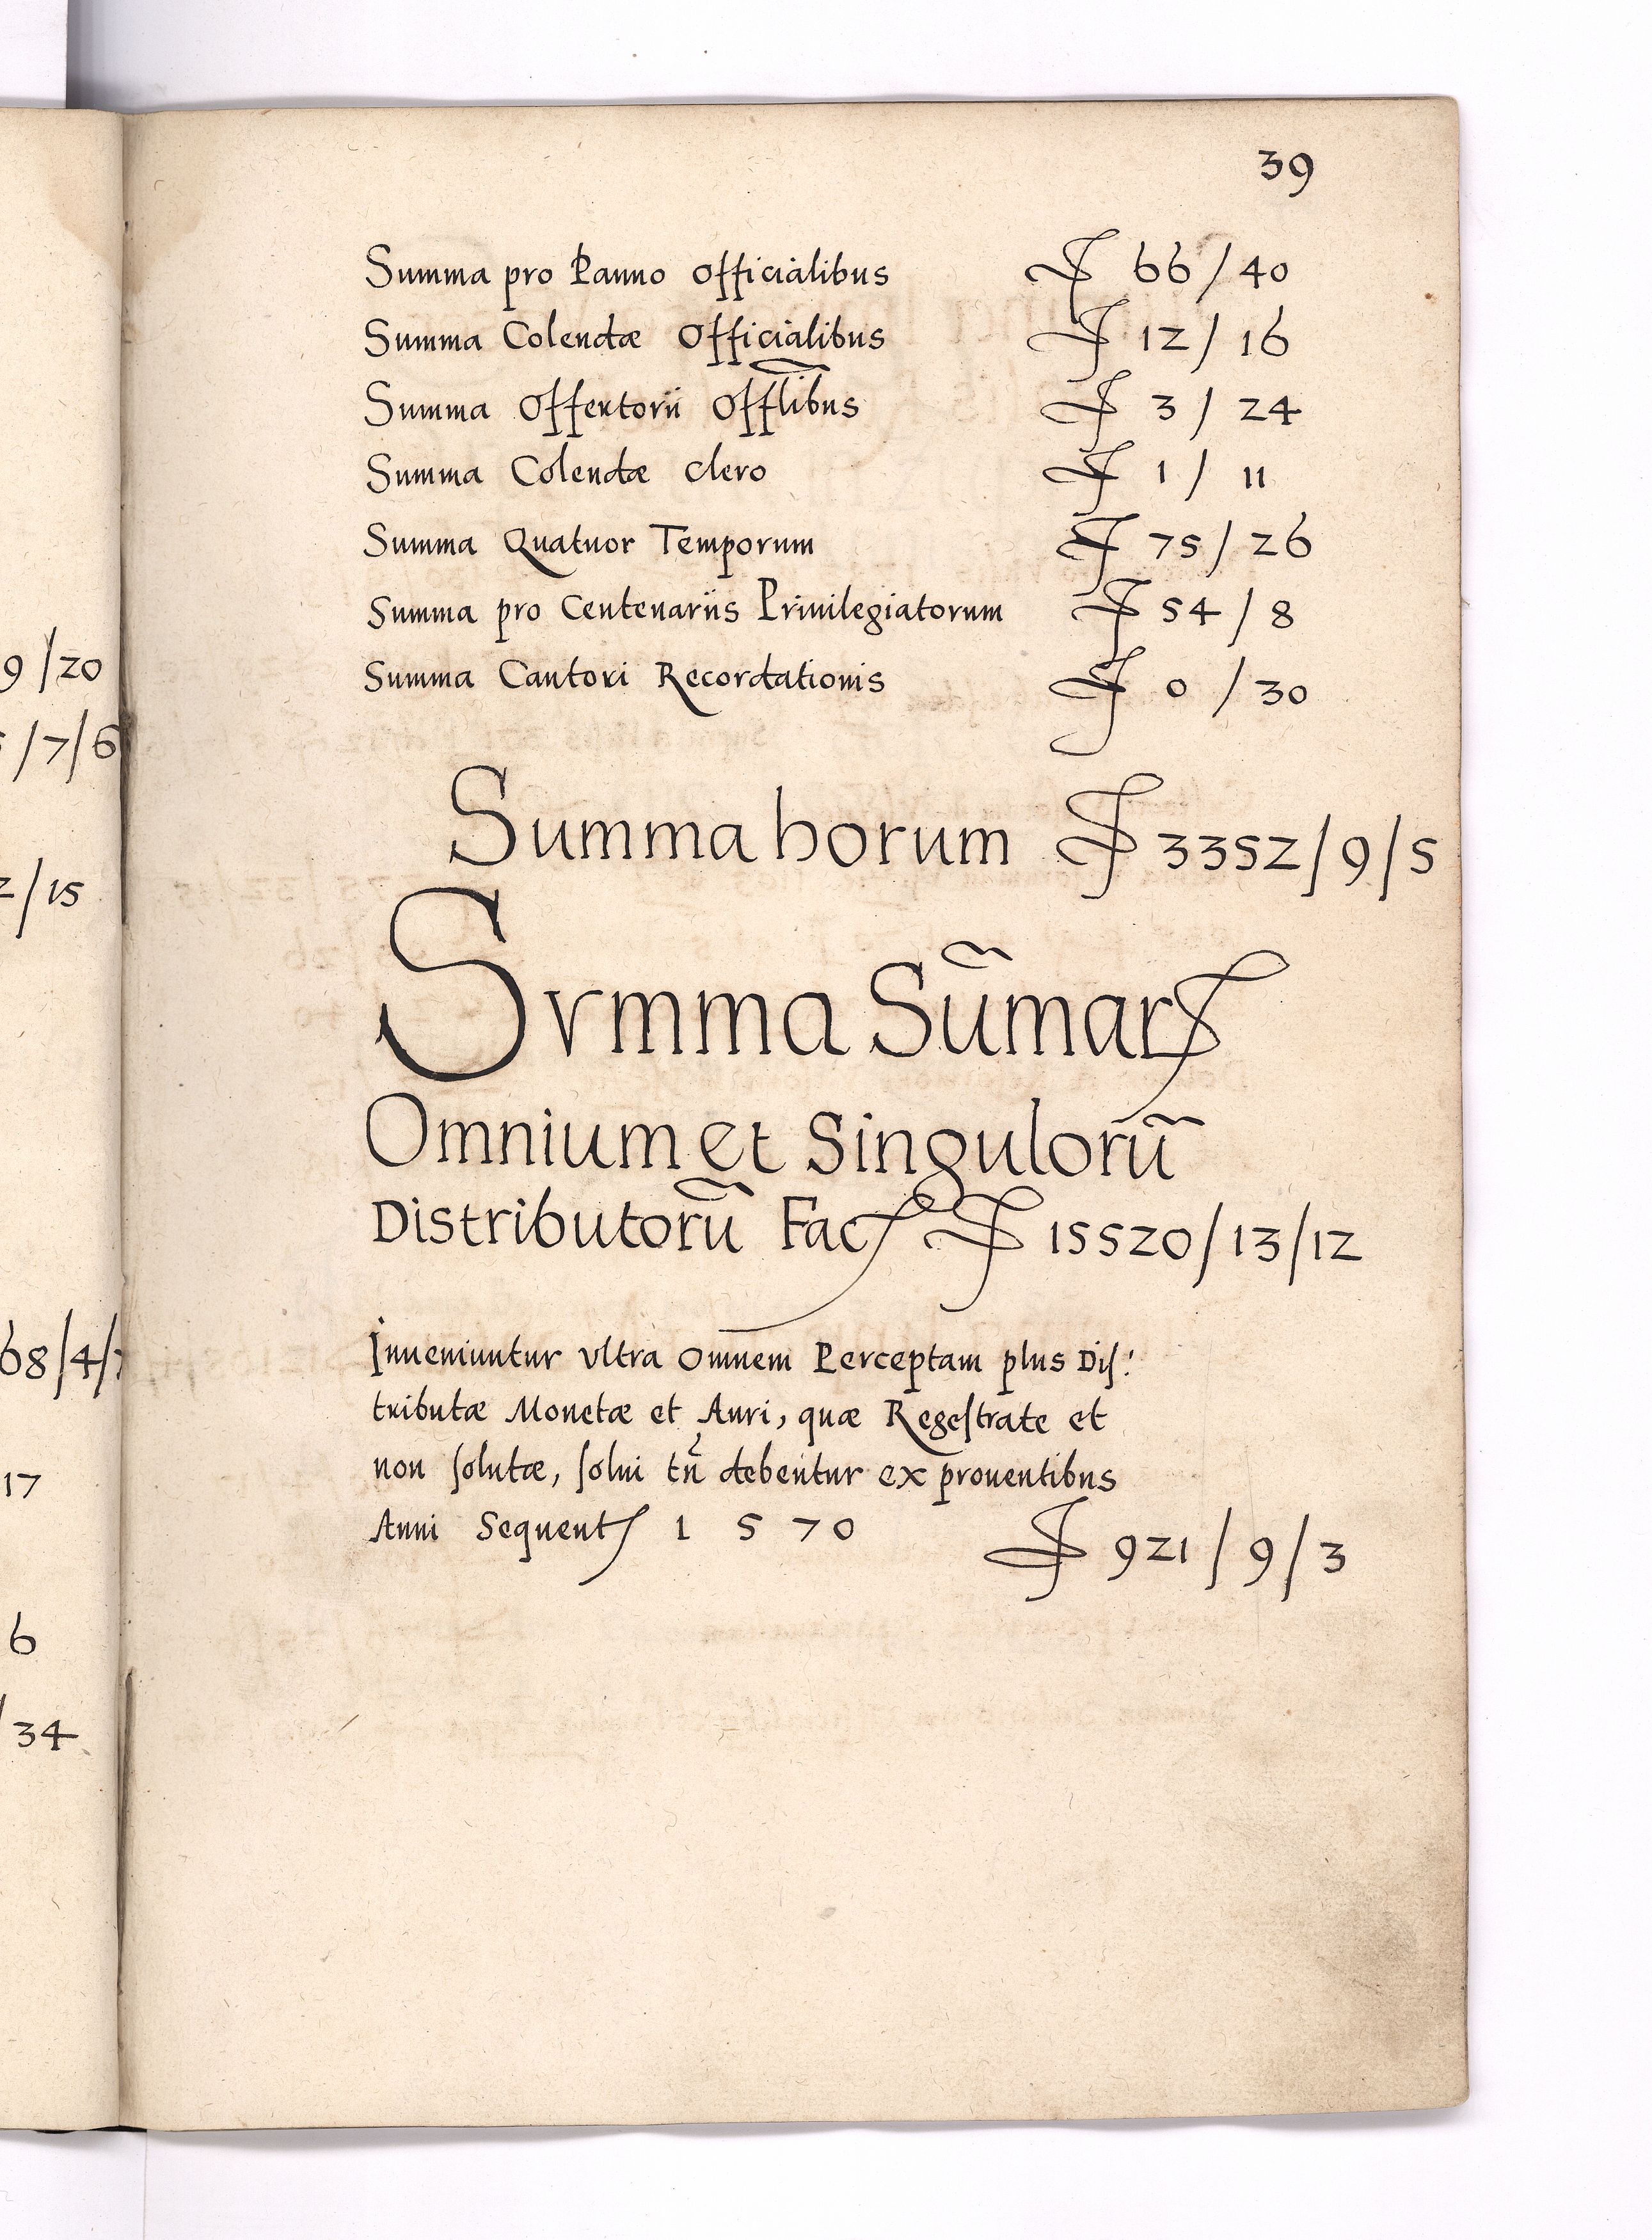 39
Summa pro Panno Officialibus ƒ 66 / 40
Summa Colendæ Officialibus ƒ 12 / 16
Summa Offertorii Offlibus ƒ 3 / 24
Summa Colendæ Clero ƒ 1 / 11
Summa Quatuor Temporum ƒ 75 / 26
Summa pro Centenariis Priuilegiatorum ƒ 54 / 8
Summa Cantori Recordationis ƒ 0 / 30
Summa horum ƒ 3352 / 9 / 5
Svmma Sum̄arꝭ
Omnium et Singulorū
Distributorū Facꝭ ƒ 15520 / 13 / 12
Inueniuntur vltra Omnem Perceptam plus Diſ:
tributæ Monetæ et Auri, quæ Regeſtrate et
non ſolutæ, ſolui tn̄ debentur ex prouentibus
Anni Sequentꝭ 1 5 70 ƒ 921 / 9 / 3
9 / 20
/ 7 / 6
/ 15
68 / 4 /
17
6
/ 34